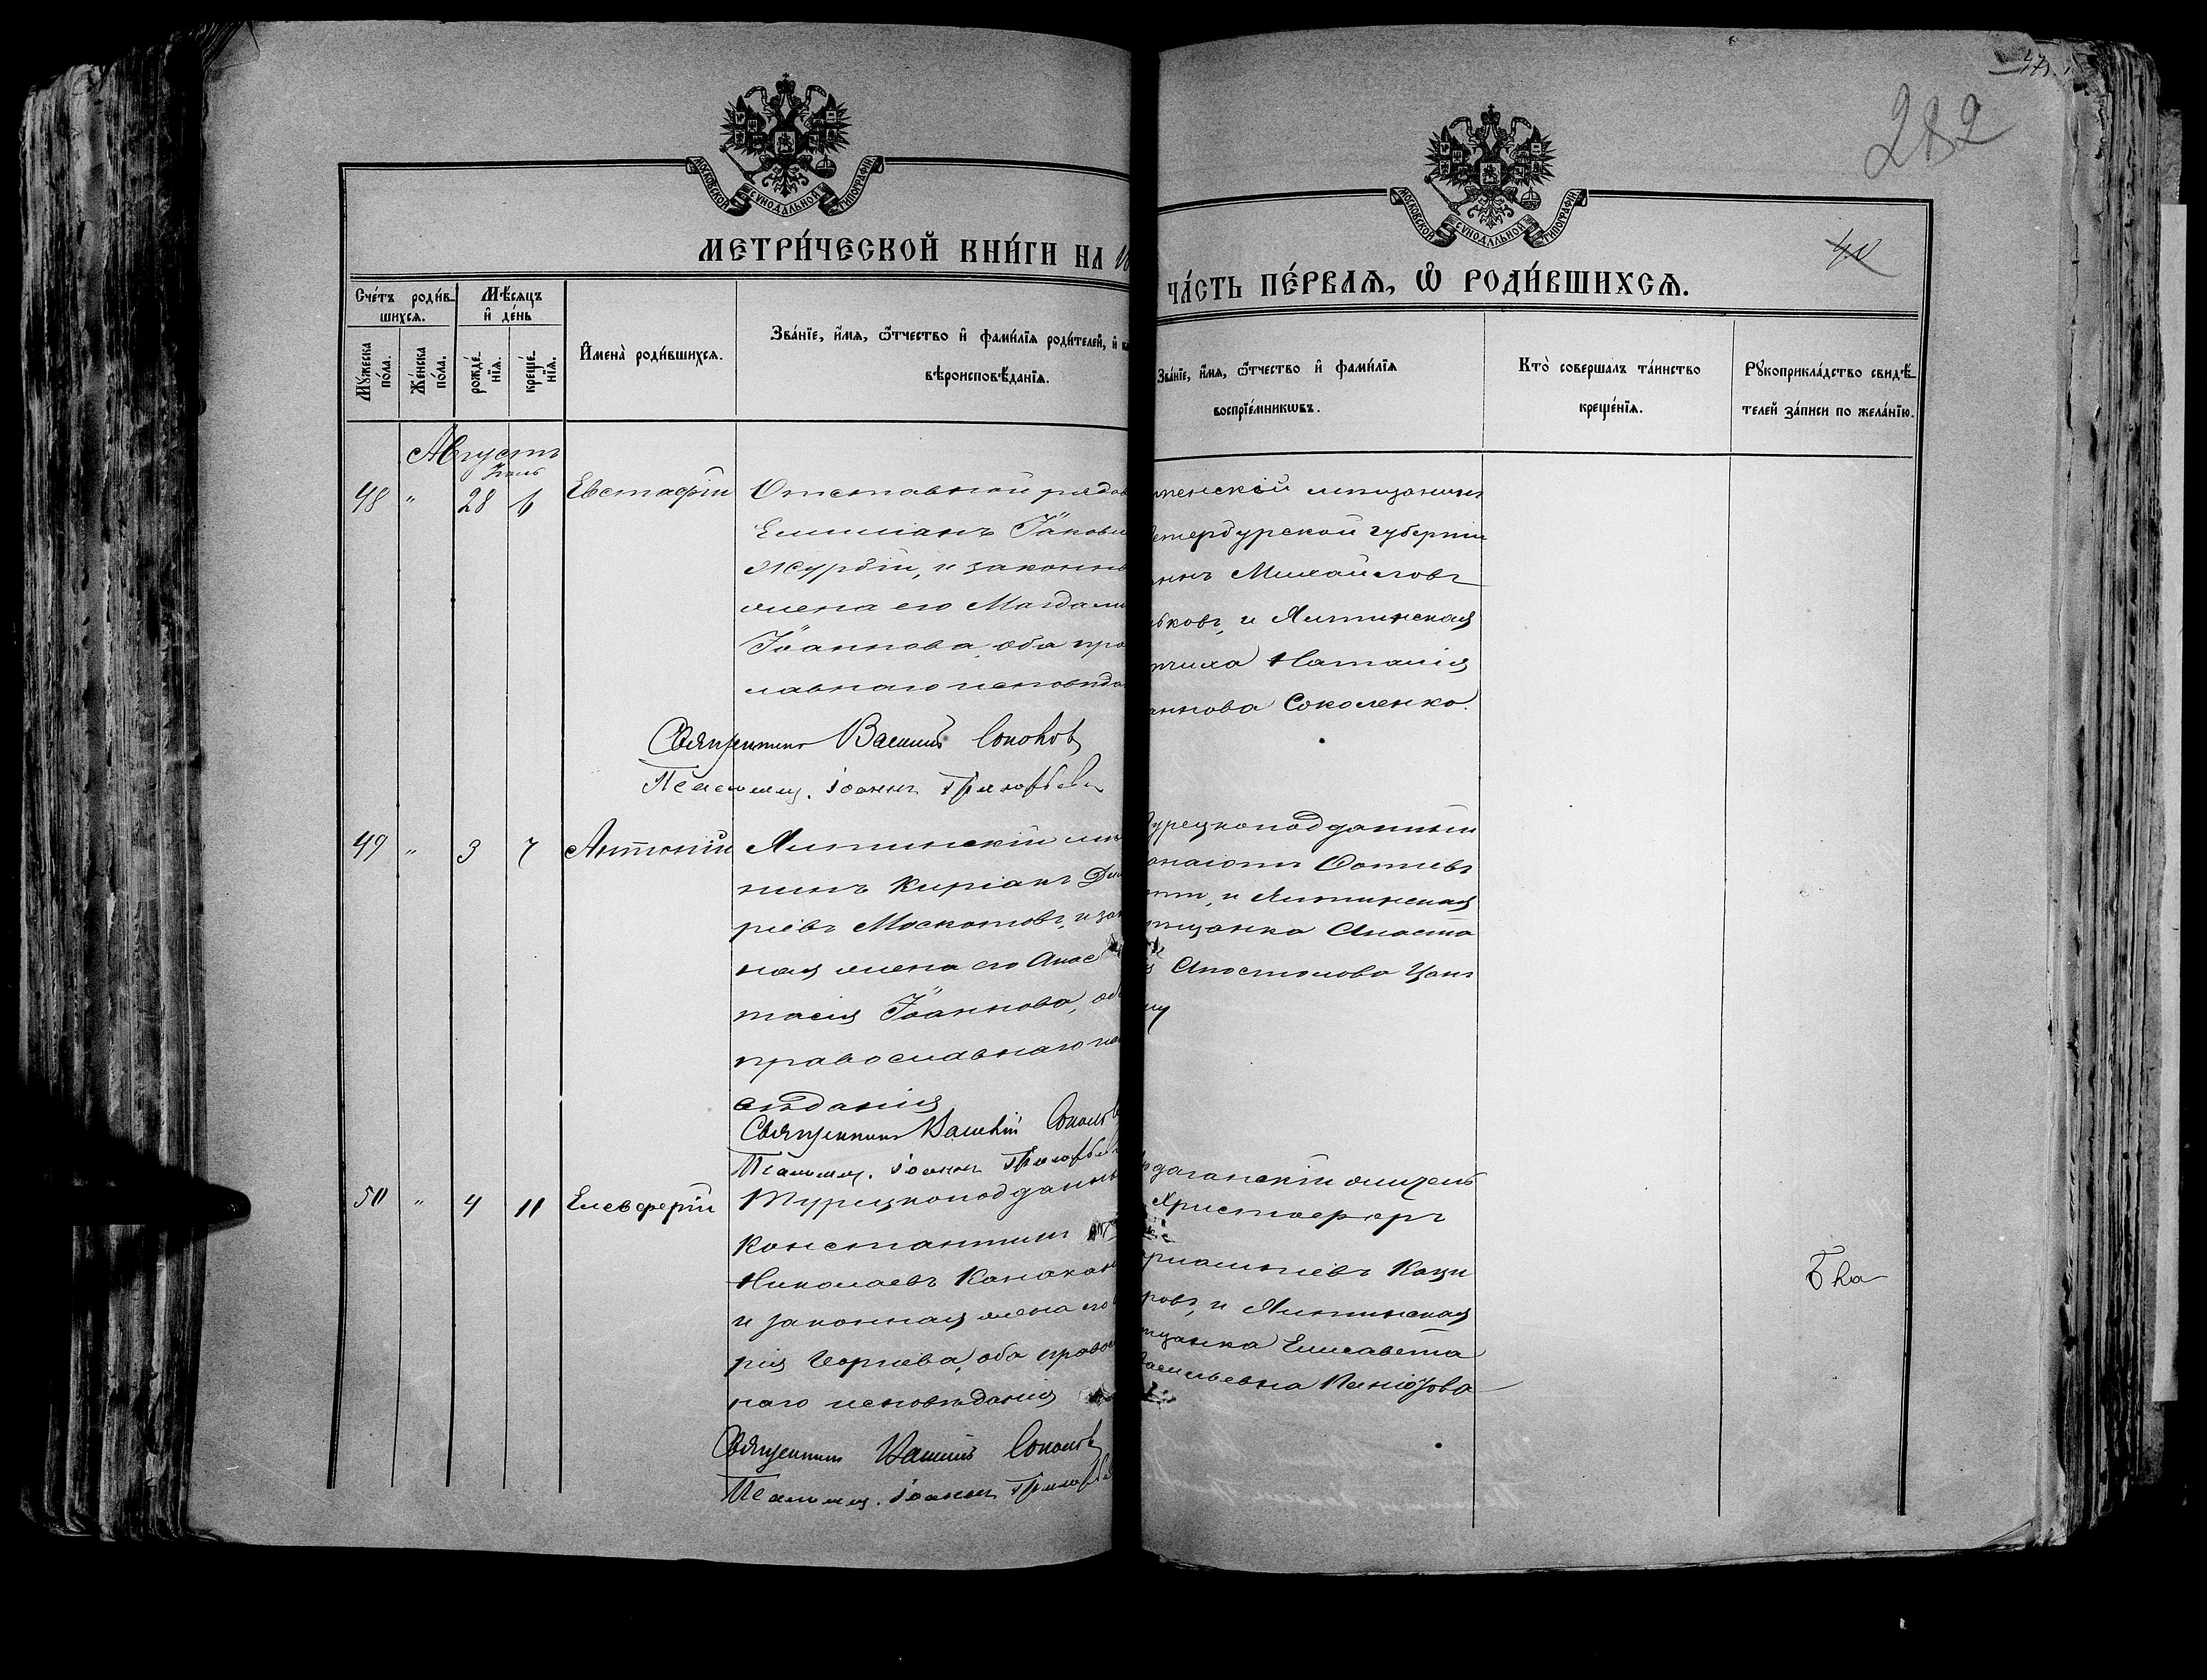 282
МОСКОВСКОЙ СУНОДАЛЬНОЙ ТИПОГРАФІИ
МЕТРИ́ЧЕСКОЙ КНИ́ГИ НА
Сче́тъ роди́в-
шихсѧ.
Мѣ́сѧцъ
и҆ де́нь
Мꙋжеска по́ла.
Же́нска по́ла.
рожде́-нїѧ.
креще́-нїѧ.
И҆мена̀ роди́вшихсѧ.
Зва́нїе, и҆́мѧ, ѻ҆́тчество и҆ фами́лїѧ роди́телей, и҆
вѣроисповѣ́данїѧ.
Августъ
48 " 28 6 Евстафій Отставной рядов
Емиліанъ Іаковл
Журбій, и законн
жена его Магдали
Іоаннова, оба про
лавнаго исповѣда
Священникъ Василій Соколов
Псаломщ. Іоаннъ
49 " 3 7 Антоній Ялтинскій мѣ
нинъ Киріакъ Ди
ріевъ Москотовъ, и зак
ная жена его Анас
тасія Іоаннова, об
православнаго ис
вѣданія
Священникъ Василій Соколов
Псаломщ. Іоаннъ
50 " 4 11 Елевферій Турецкоподданны
Константинъ
Николаевъ Канакан
и законная жена его
рія Георгіева, оба правос
наго исповѣданія
Священникъ Василій Соколов
Псаломщ. Іоаннъ
МОСКОВСКОЙ СУНОДАЛЬНОЙ ТИПОГРАФІИ
40
ЧА́СТЬ ПЕ́РВАѦ, Ѡ҆ РОДИ́ВШИХСѦ.
Зва́нїе, и҆́мѧ, ѻ҆́тчество и҆ фами́лїѧ
воспрїе́мникѡвъ.
Кто̀ соверша́лъ та́инство
креще́нїѧ.
Рꙋкоприкла́дство свидѣ́-
телей за́писи по жела́нїю.
енскій мѣщанинъ
етербурской губерніи
аннъ Михайловъ
ьковъ, и Ялтинская
Наталія
аннова Соколенко.
Турецкоподданный
анаіотъ Фотіевъ
и Ялтинская
щанка Анаста
Апостолова Цан
рдаганскій житель
Христофоръ
Каци
ровъ, и Ялтинская
щанка Елисавета
Васильевна